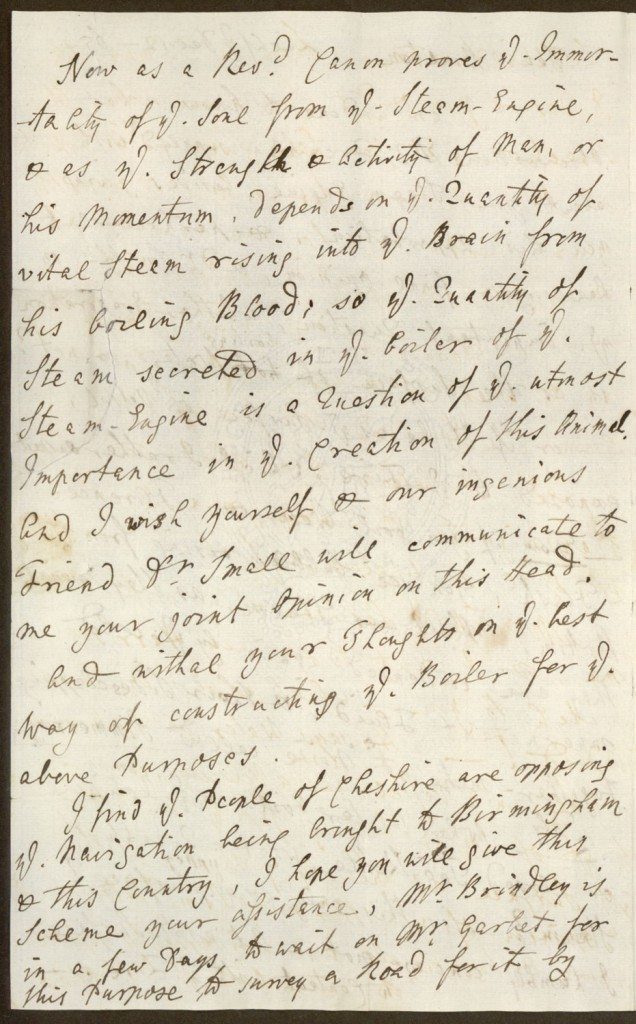 Now as a Rev.d Canon proves ye. Immor-
-tality of ye. Soul from ye. Steam-Engine,
& as ye. Strength & Activity of Man, or
his Momentum, depends on ye. Quantity of
vital Steam rising into ye. Brain from
his boiling Blood; so ye. Quantity of
Steam secreted in ye. boiler of ye.
Steam-Engine is a Question of ye. utmost
Importance in ye. Creation of this Animal.
And I wish yourself & our ingenious
Friend Dr Small will communicate to
me your joint Opinion on this Head.
And withal your Thoughts on ye. best
way of constructing ye. Boiler for ye.
above Purposes.
I find ye. People of Cheshire are opposing
ye. Navigation being brought to Birmingham
& this Country, I hope you will give this
Scheme your assistance, Mr. Brindley is
in a few Days to wait on Mr. Garbet for
this Purpose to survey a Road for it by